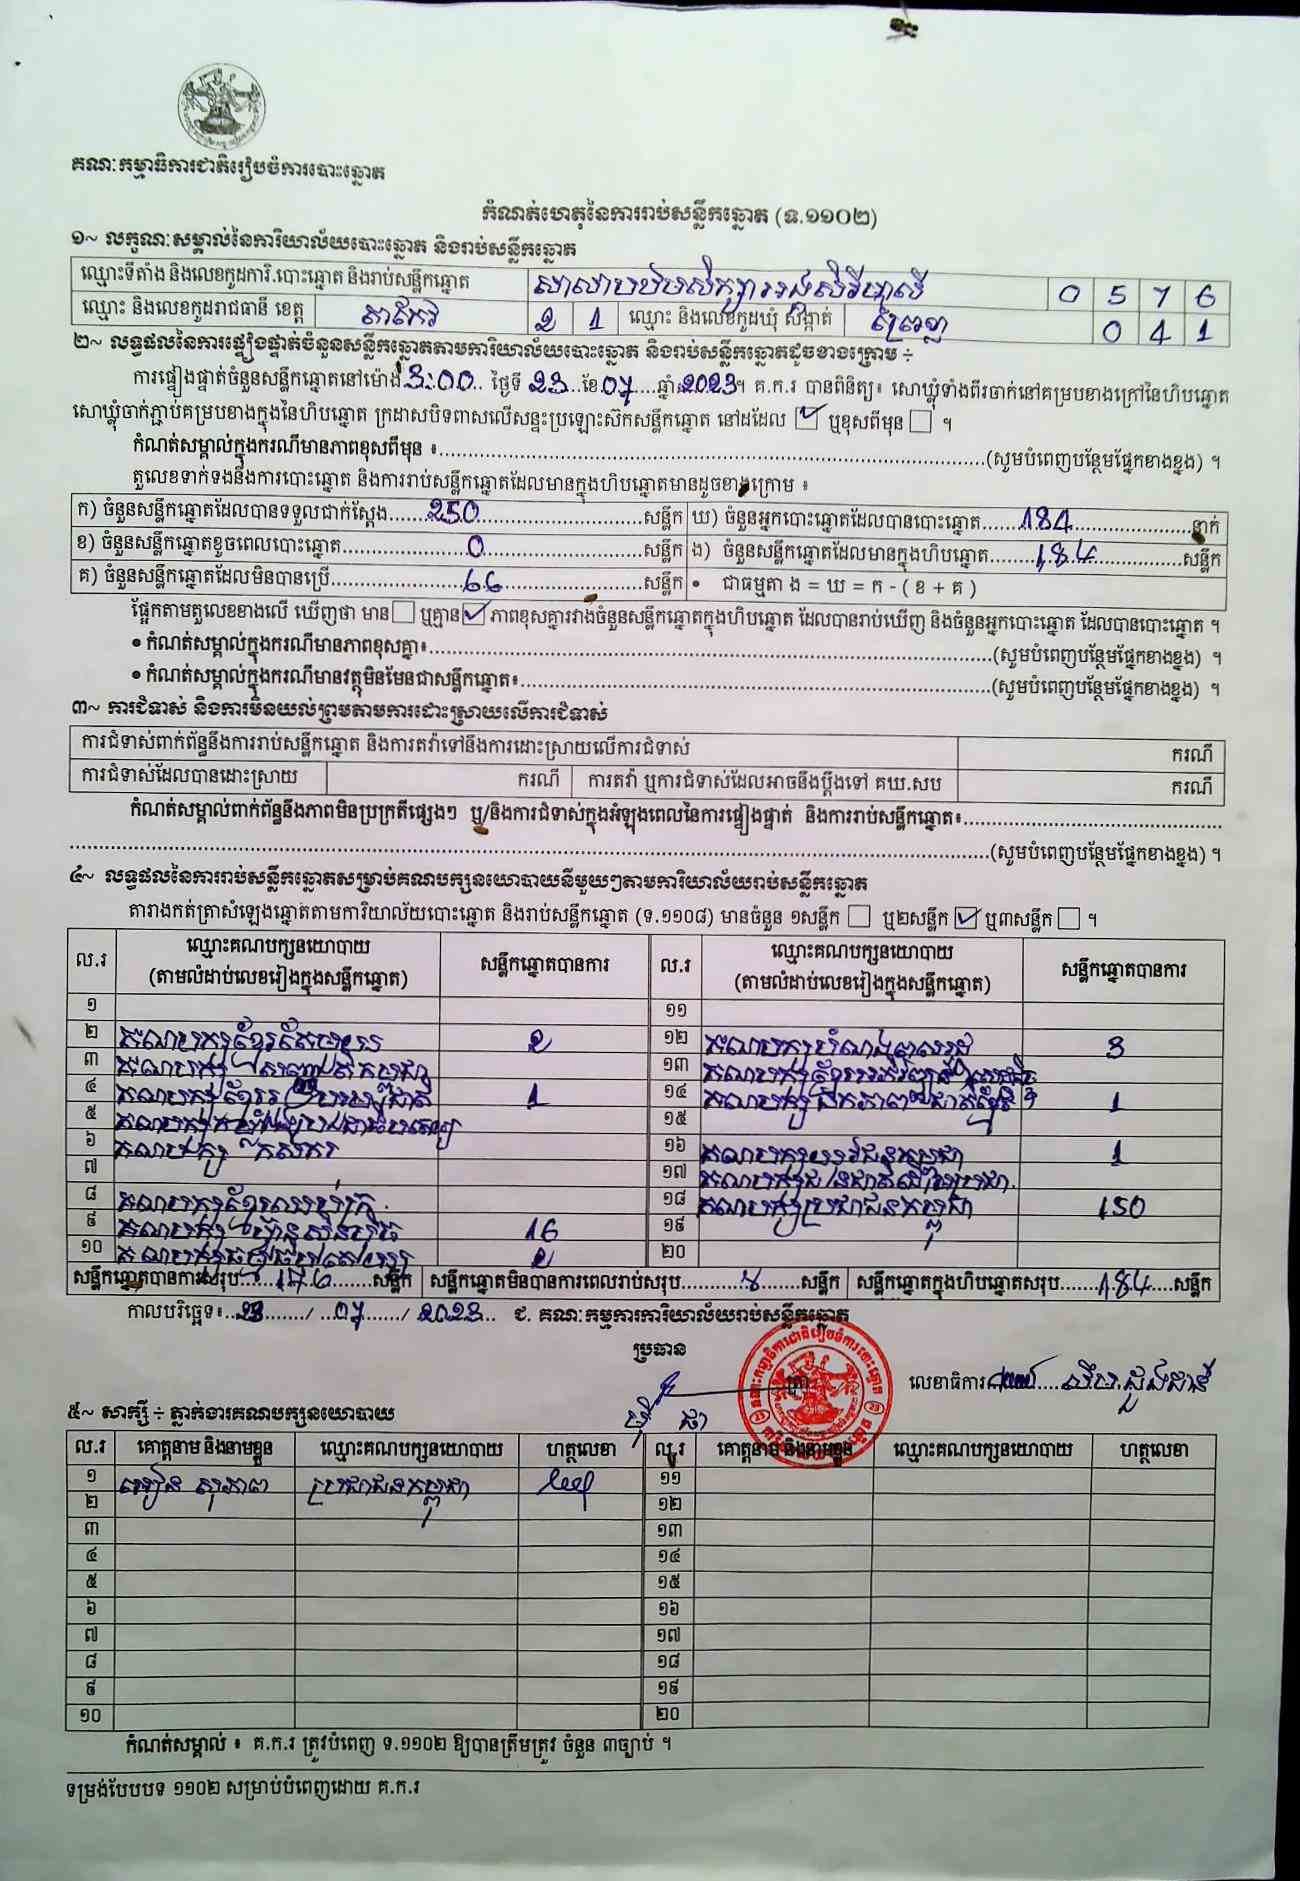 គណៈកម្មាធិការជាតិរៀបចំការបោះឆ្នោត
កំណត់ហេតុនៃការរាប់សន្លឹកឆ្នោត (ទ.១១០២)
១~ លក្ខណៈសម្គាល់នៃការិយាល័យបោះឆ្នោត និងរាប់សន្លឹកឆ្នោត
ឈ្មោះទីតាំង និងលេខកូដការិ.បោះឆ្នោត និងរាប់សន្លឹកឆ្នោត សាលាបឋមសិក្សា 0 5 7 6
ឈ្មោះ និងលេខកូដរាជធានី ខេត្ត តាកែវ 2 1 ឈ្មោះ និងលេខកូដឃុំ សង្កាត់ 0 4 1
២~ លទ្ធផលនៃការផ្ទៀងផ្ទាត់ចំនួនសន្លឹកឆ្នោតតាមការិយាល័យបោះឆ្នោត និងរាប់សន្លឹកឆ្នោតដូចខាងក្រោម ÷
ការផ្ទៀងផ្ទាត់ចំនួនសន្លឹកឆ្នោតនៅម៉ោង 3:00 ថ្ងៃទី 23 ខែ 07 ឆ្នាំ 2023។ គ.ក.រ បានពិនិត្យ៖ សោឃ្លុំទាំងពីរចាក់នៅគម្របខាងក្រៅនៃហិបឆ្នោត
សោឃ្លុំចាក់ភ្ជាប់គម្របខាងក្នុងនៃហិបឆ្នោត ក្រដាសបិទពាសលើសន្ទះប្រឡោះស៊កសន្លឹកឆ្នោត នៅដដែល ☑ ឬខុសពីមុន ☐ ។
កំណត់សម្គាល់ក្នុងករណីមានភាពខុសពីមុន ៖ (សូមបំពេញបន្ថែមផ្នែកខាងខ្នង) ។
តួលេខទាក់ទងនឹងការបោះឆ្នោត និងការរាប់សន្លឹកឆ្នោតដែលមានក្នុងហិបឆ្នោតមានដូចខាងក្រោម ៖
ក) ចំនួនសន្លឹកឆ្នោតដែលបានទទួលជាក់ស្តែង 250 សន្លឹក ឃ) ចំនួនអ្នកបោះឆ្នោតដែលបានបោះឆ្នោត 184 នាក់
ខ) ចំនួនសន្លឹកឆ្នោតខូចពេលបោះឆ្នោត 0 សន្លឹក ង) ចំនួនសន្លឹកឆ្នោតដែលមានក្នុងហិបឆ្នោត 184 សន្លឹក
គ) ចំនួនសន្លឹកឆ្នោតដែលមិនបានប្រើ 66 សន្លឹក • ជាធម្មតា ង = ឃ = ក - ( ខ + គ )
ផ្អែកតាមតួលេខខាងលើ ឃើញថា មាន ☐ ឬគ្មាន ☑ ភាពខុសគ្នារវាងចំនួនសន្លឹកឆ្នោតក្នុងហិបឆ្នោត ដែលបានរាប់ឃើញ និងចំនួនអ្នកបោះឆ្នោត ដែលបានបោះឆ្នោត ។
• កំណត់សម្គាល់ក្នុងករណីមានភាពខុសគ្នា៖ (សូមបំពេញបន្ថែមផ្នែកខាងខ្នង) ។
• កំណត់សម្គាល់ក្នុងករណីមានវត្ថុមិនមែនជាសន្លឹកឆ្នោត៖ (សូមបំពេញបន្ថែមផ្នែកខាងខ្នង) ។
៣~ ការជំទាស់ និងការមិនយល់ព្រមតាមការដោះស្រាយលើការជំទាស់
ការជំទាស់ពាក់ព័ន្ធនឹងការរាប់សន្លឹកឆ្នោត និងការតវ៉ាទៅនឹងការដោះស្រាយលើការជំទាស់ ករណី
ការជំទាស់ដែលបានដោះស្រាយ ករណី ការតវ៉ា ឬការជំទាស់ដែលអាចនឹងប្តឹងទៅ គឃ.សប ករណី
កំណត់សម្គាល់ពាក់ព័ន្ធនឹងភាពមិនប្រក្រតីផ្សេងៗ ឬ/និងការជំទាស់ក្នុងអំឡុងពេលនៃការផ្ទៀងផ្ទាត់ និងការរាប់សន្លឹកឆ្នោត៖
(សូមបំពេញបន្ថែមផ្នែកខាងខ្នង) ។
៤~ លទ្ធផលនៃការរាប់សន្លឹកឆ្នោតសម្រាប់គណបក្សនយោបាយនីមួយៗតាមការិយាល័យរាប់សន្លឹកឆ្នោត
តារាងកត់ត្រាសំឡេងឆ្នោតតាមការិយាល័យបោះឆ្នោត និងរាប់សន្លឹកឆ្នោត (ទ.១១០៨) មានចំនួន ១សន្លឹក ☐ ឬ២សន្លឹក ☑ ឬ៣សន្លឹក ☐ ។
ល.រ ឈ្មោះគណបក្សនយោបាយ (តាមលំដាប់លេខរៀងក្នុងសន្លឹកឆ្នោត) សន្លឹកឆ្នោតបានការ ល.រ ឈ្មោះគណបក្សនយោបាយ (តាមលំដាប់លេខរៀងក្នុងសន្លឹកឆ្នោត) សន្លឹកឆ្នោតបានការ
១ ១១
២ 2 ១២ 3
៣ ១៣
៤ 1 ១៤ 1
៥ ១៥
៦ គណបក្ស កសិករ ១៦ គណបក្សយុវជនកម្ពុជា 1
៧ ១៧
៨ ១៨ គណបក្សប្រជាជនកម្ពុជា 150
៩ 16 ១៩
១០ 2 ២០
សន្លឹកឆ្នោតបានការសរុប 176 សន្លឹក សន្លឹកឆ្នោតមិនបានការពេលរាប់សរុប 8 សន្លឹក សន្លឹកឆ្នោតក្នុងហិបឆ្នោតសរុប 184 សន្លឹក
កាលបរិច្ឆេទ៖ 23 / 07 / 2023 ជ. គណៈកម្មការការិយាល័យរាប់សន្លឹកឆ្នោត
ប្រធាន
លេខាធិការ
៥~ សាក្សី ÷ ភ្នាក់ងារគណបក្សនយោបាយ
ល.រ គោត្តនាម និងនាមខ្លួន ឈ្មោះគណបក្សនយោបាយ ហត្ថលេខា ល.រ គោត្តនាម និងនាមខ្លួន ឈ្មោះគណបក្សនយោបាយ ហត្ថលេខា
១ សុភាព ប្រជាជនកម្ពុជា ១១
២ ១២
៣ ១៣
៤ ១៤
៥ ១៥
៦ ១៦
៧ ១៧
៨ ១៨
៩ ១៩
១០ ២០
កំណត់សម្គាល់ ៖ គ.ក.រ ត្រូវបំពេញ ទ.១១០២ ឱ្យបានត្រឹមត្រូវ ចំនួន ៣ច្បាប់ ។
ទម្រង់បែបបទ ១១០២ សម្រាប់បំពេញដោយ គ.ក.រ